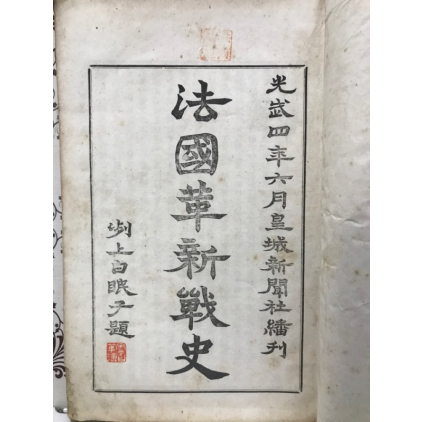 光武四年六月皇城新聞社繙刊
法國革新戰史
洌上白眠子題